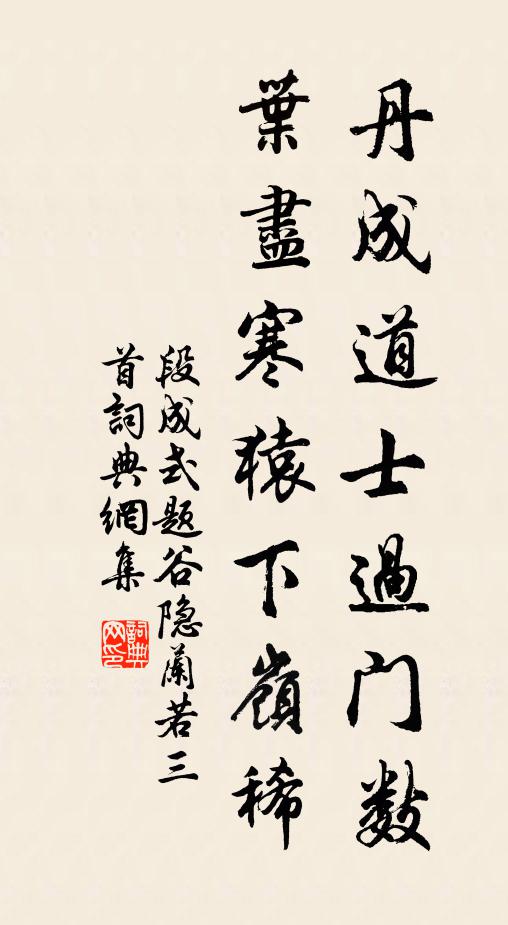 丹成道士過门數
葉盡寒猿下嶺稀
段成式题谷隐蘭若三
首詞典網集
詞典网印